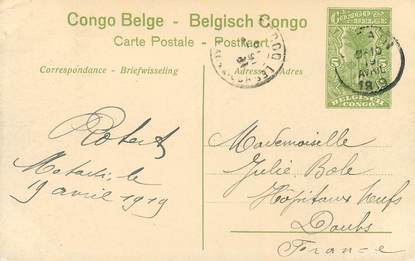 Congo Belge - Belgisch Congo
Carte Postale - Postkaart
Correspondance - Briefwisseling
Adresse - Adres
CONGO BELGE
5 5
BELGISCH
CONGO
AVRIL
1919
Robert
Matadi, le
19 avril 1919
Mademoiselle
Julie Bole
Hôpitaux Neufs
Doubs
France